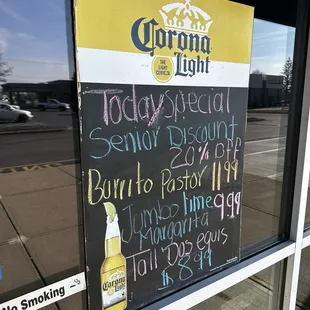 Corona
Light
THE LIGHT
CERVEZA
Today special
Senior Discount
20% off
Burrito Pastor 11.99
Jumbo lime 9.99
Margarita
Tall Dos equis
is 8.99
Corona
Light
No Smoking